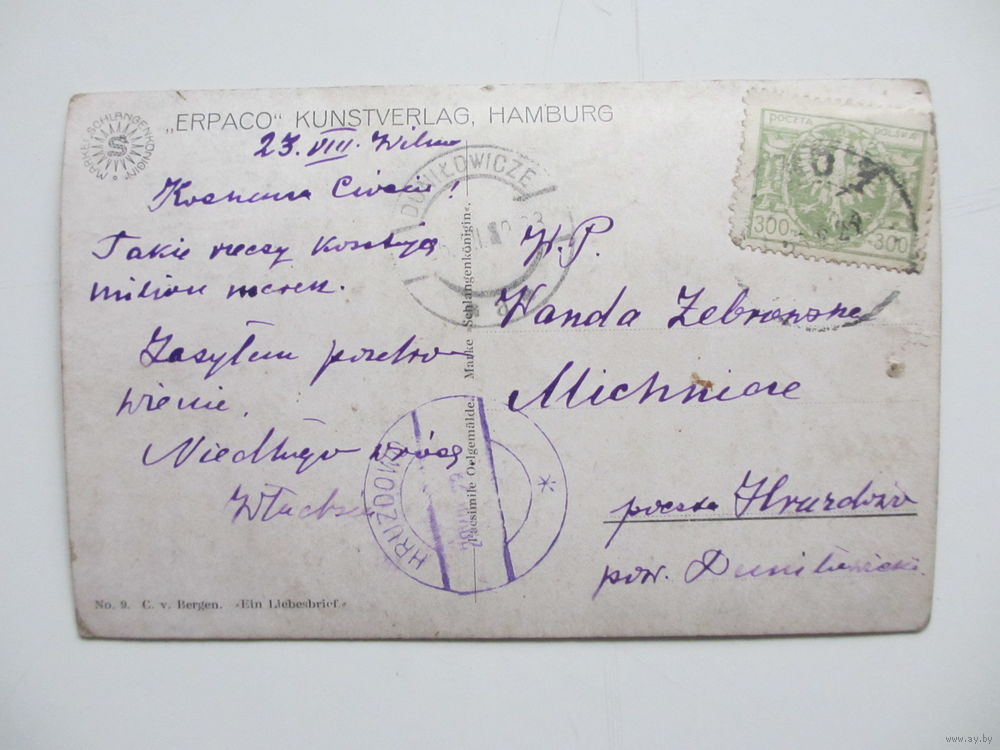 „ERPACO“ KUNSTVERLAG, HAMBURG
MARKE SCHLANGENKÖNIGIN
S
23. VIII. Wilno
Kochana Ciociu!
Takie rzeczy kosztują
milion marek.
Zasyłam pozdro-
wienie.
Niedługo wrócę
Władzia
No. 9. C. v. Bergen. »Ein Liebesbrief.«
Facsimile Oelgemälde. Marke »Schlangenkönigin«.
DUNIŁOWICZE
HRUZDOWO
POCZTA POLSKA
300 300
W.P.
Wanda Żebrowska
Michnicze
poczta Hruzdowo
pow. Duniłowicki
www.ay.by